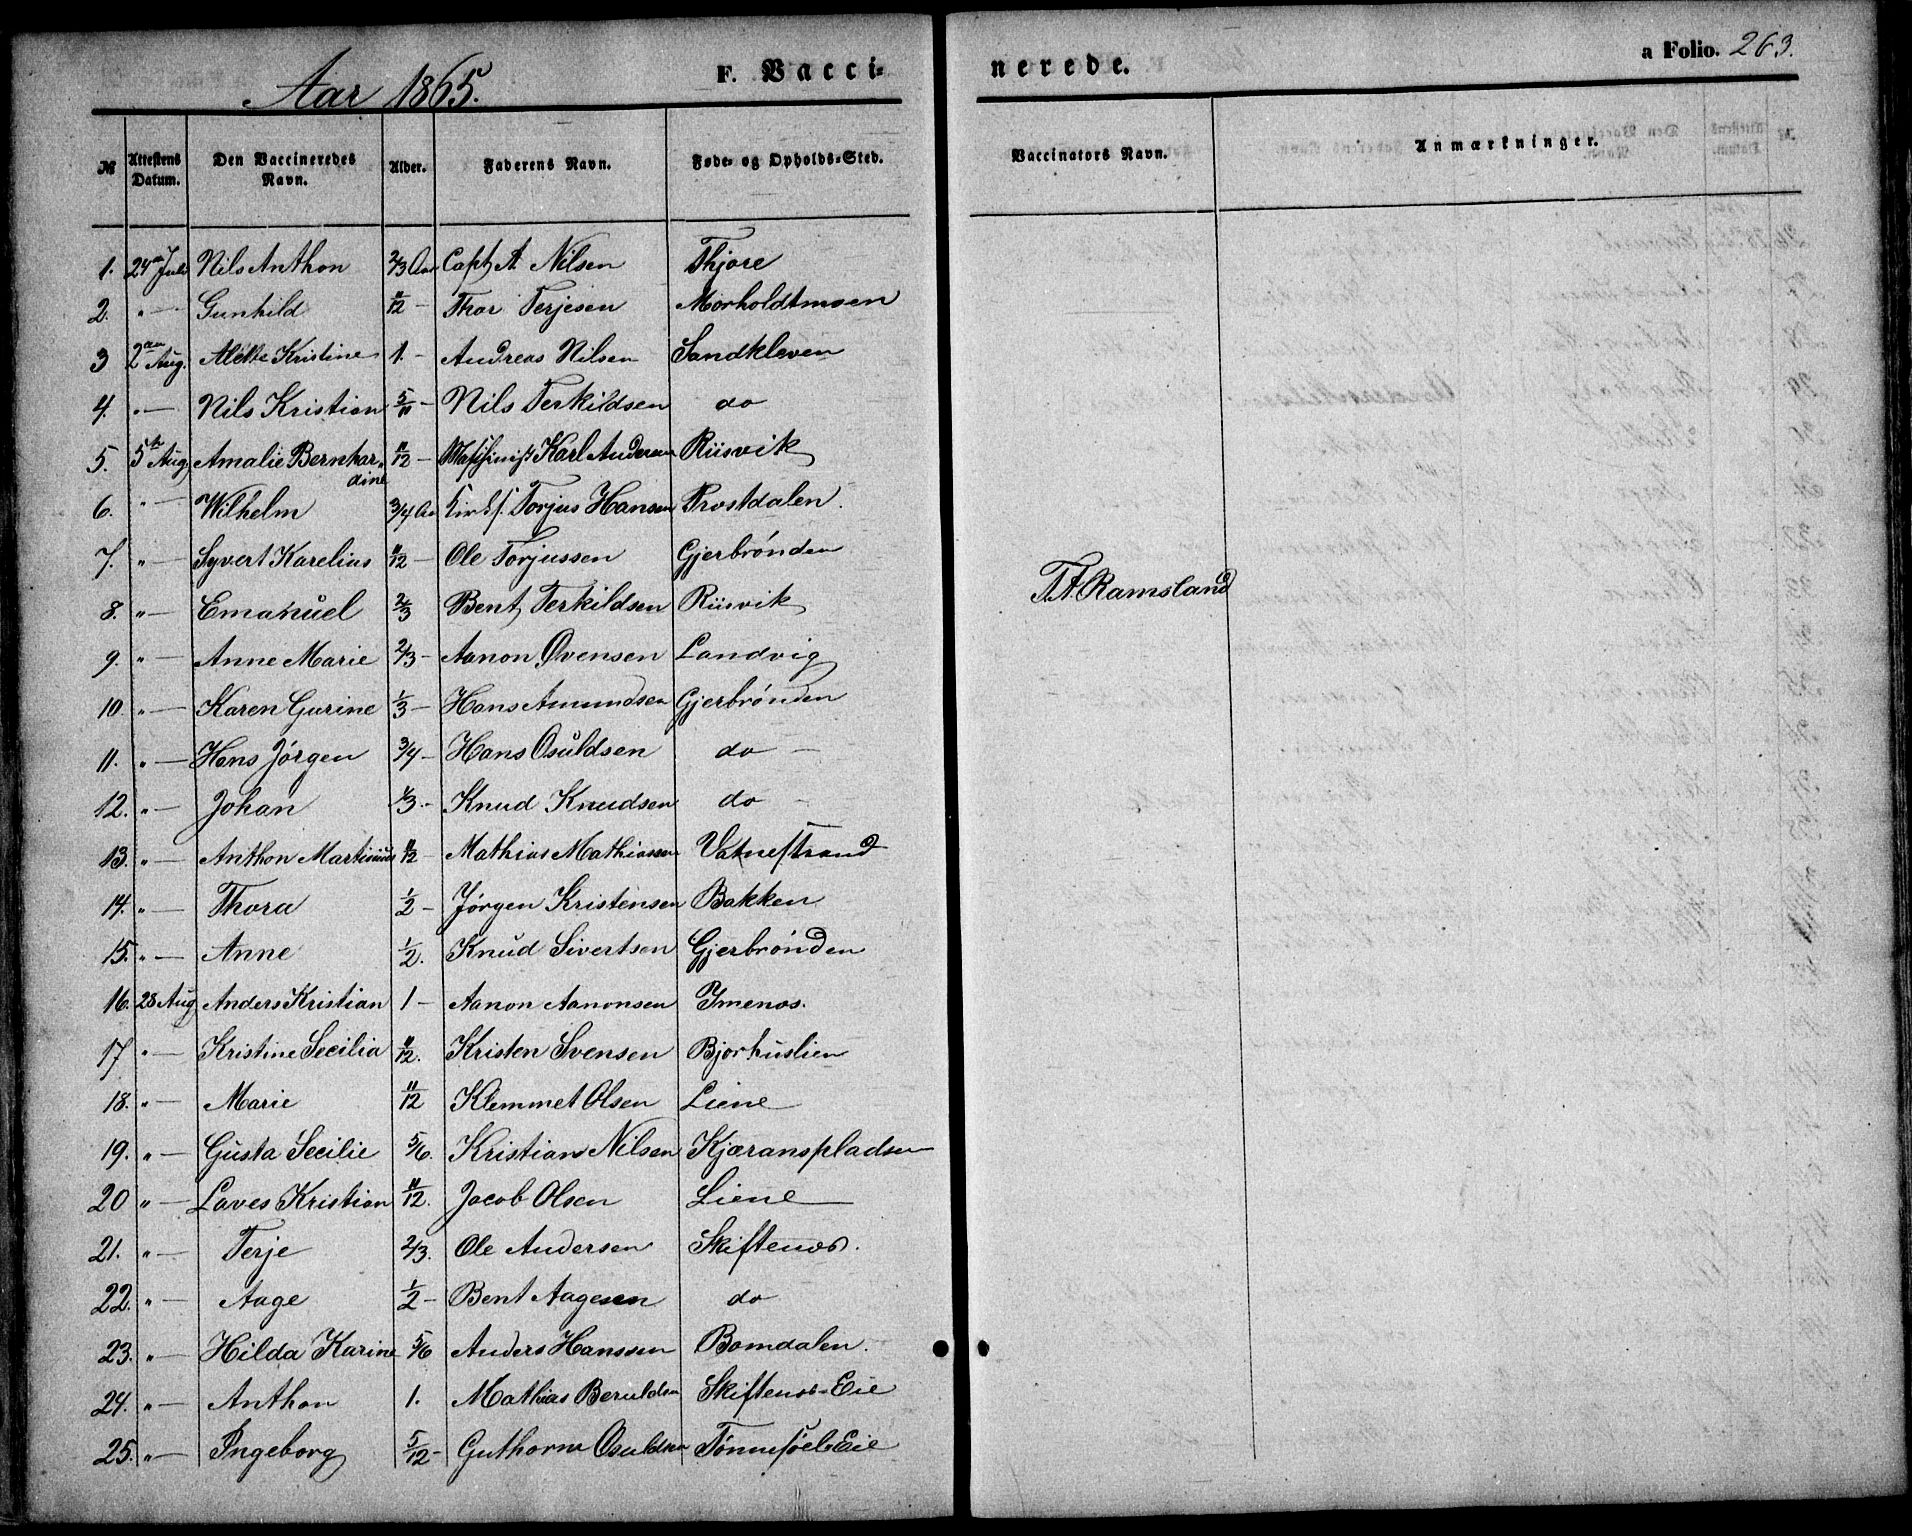 Aar 1865. F. Vacci- nerede. a Folio. 263.
№ Attestens Datum. Den Vaccineredes Navn. Alder. Faderens Navn. Føde- og Opholds-Sted. Vaccinators Navn. Anmærkninger.
1. 24de Juli Nils Anthon 2/3 Aar Capt A Nilsen Thjore
2. " — Gunhild 11/12 — Thor Terjesen Morholdtmoen
3 2den Aug. Alette Kristine 1. - Andreas Nilsen Sandkleven
4. " — Nils Kristian 5/11 — Nils Terkildsen do
5. 5te Aug. Amalie Bernhardine 11/12 — Karl Andersen Riisvik
6. " — Wilhelm 3/4 Aar Torjus Hansen Prostdalen.
7. " — Syvert Karelius 11/12 — Ole Torjussen Gjerbrönden
8. " — Emanuel 2/3 Bent Terkildsen Riisvik
T. A. Ramsland
9. " — Anne Marie 2/3 — Aanon Ovensen Landvig
10. " — Karen Gurine 1/3 — Hans Amundsen Gjerbrönden
11. " — Hans Jörgen 3/4 — Hans Osuldsen do —
12. " — Johan 1/3. - Knud Knudsen do —
13. " — Anthon Martinius 11/12 — Mathias Mathiassen Vatnestrand
14. " — Thora 1/2 — Jørgen Kristensen Bakken
15. " — Anne 1/2. Knud Sivertsen Gjerbrönden
16. 28 Aug Anders Kristian 1 - Aanon Aanonsen Imenos.
17 " — Kristine Secilia 11/12. Kristen Svensen Bjorhuslien
18. " — Marie 11/12 Klemmet Olsen Liene
19. " — Gusta Secilie 5/6. Kristian Nilsen Kjæranspladsen
20 " — Laves Kristian 11/12. Jacob Olsen Liene
21. " — Terje 2/3. Ole Andersen Skiftenos.
22. " — Aage 1/2 — Bent Aagesen do
23. " — Hilda Karine 5/6 Anders Hanssen Bomdalen.
24. " — Anthon 1. Mathias Beruldsen Skiftenos-Eie
25. " — Ingeborg 5/12 - Guthorm Osuldsen Tönnesöel-Eie